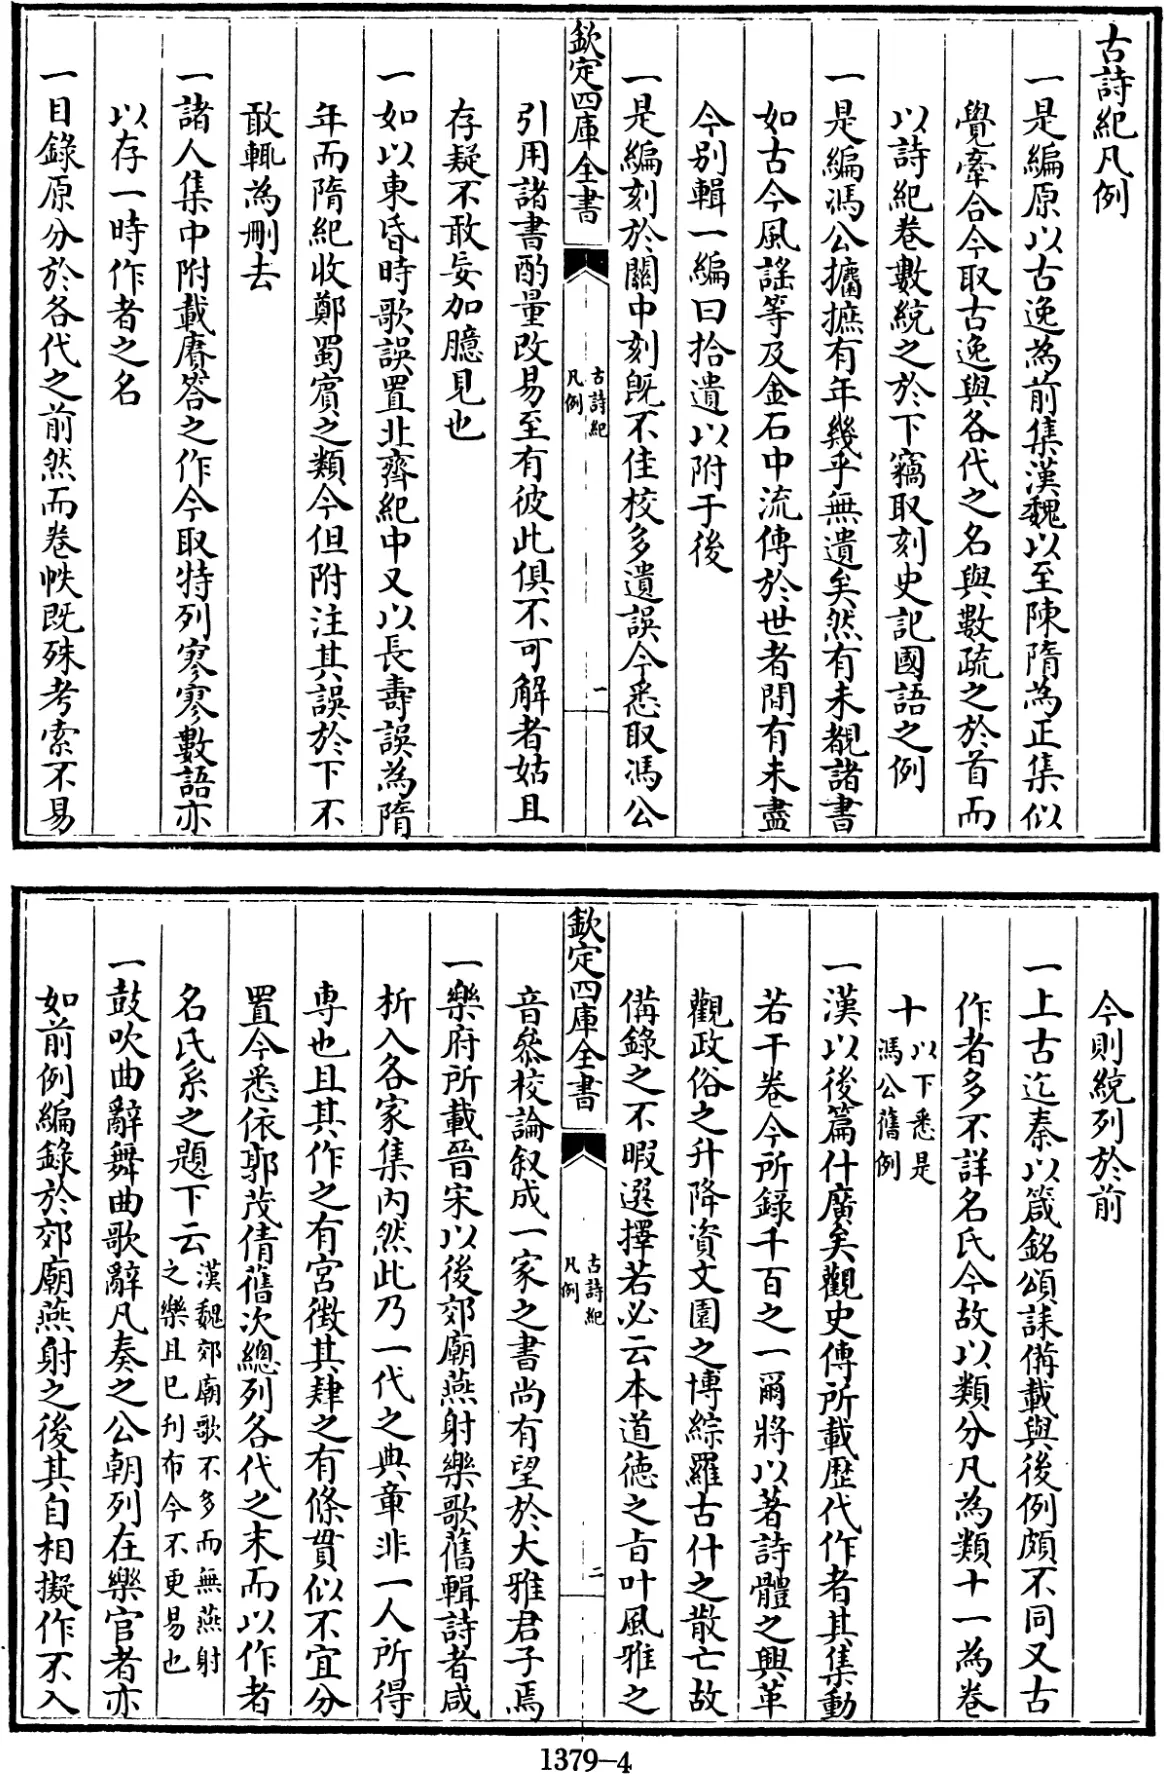 古詩紀凡例
一是編原以古逸為前集漢魏以至陳隋為正集似
覺牽合今取古逸與各代之名與數疏之於首而
以詩紀卷數統之於下竊取刻史記國語之例
一是編馮公攟摭有年幾乎無遺矣然有未覩諸書
如古今風謡等及金石中流傳於世者間有未盡
今别輯一編曰拾遺以附于後
一是編刻於關中刻既不佳校多遺誤今悉取馮公
欽定四庫全書
古詩紀
凡例
一
引用諸書酌量改易至有彼此俱不可解者姑且
存疑不敢妄加臆見也
一如以東昏時歌誤置北齊紀中又以長壽誤為隋
年而隋紀收鄭蜀賔之類今但附注其誤於下不
敢輒為刪去
一諸人集中附載賡答之作今取特列寥寥數語亦
以存一時作者之名
一目錄原分於各代之前然而卷帙既殊考索不易
今則統列於前
一上古迄秦以箴銘頌誄備載與後例頗不同又古
作者多不詳名氏今故以類分凡為類十一為卷
十以下悉是
馮公舊例
一漢以後篇什廣矣觀史傳所載歴代作者其集動
若干卷今所録千百之一爾將以著詩體之興革
觀政俗之升降資文園之博綜羅古什之散亡故
備錄之不暇選擇若必云本道德之旨叶風雅之
欽定四庫全書
古詩紀
凡例
二
音叅校論叙成一家之書尚有望於大雅君子焉
一樂府所載晉宋以後郊廟燕射樂歌舊輯詩者咸
析入各家集内然此乃一代之典章非一人所得
専也且其作之有宮徴其肄之有條貫似不宜分
置今悉依郭茂倩舊次總列各代之末而以作者
名氏系之題下云漢魏郊廟歌不多而無燕射
之樂且已刋布今不更易也
一鼓吹曲辭舞曲歌辭凡奏之公朝列在樂官者亦
如前例編錄於郊廟燕射之後其自相擬作不入
1379-4